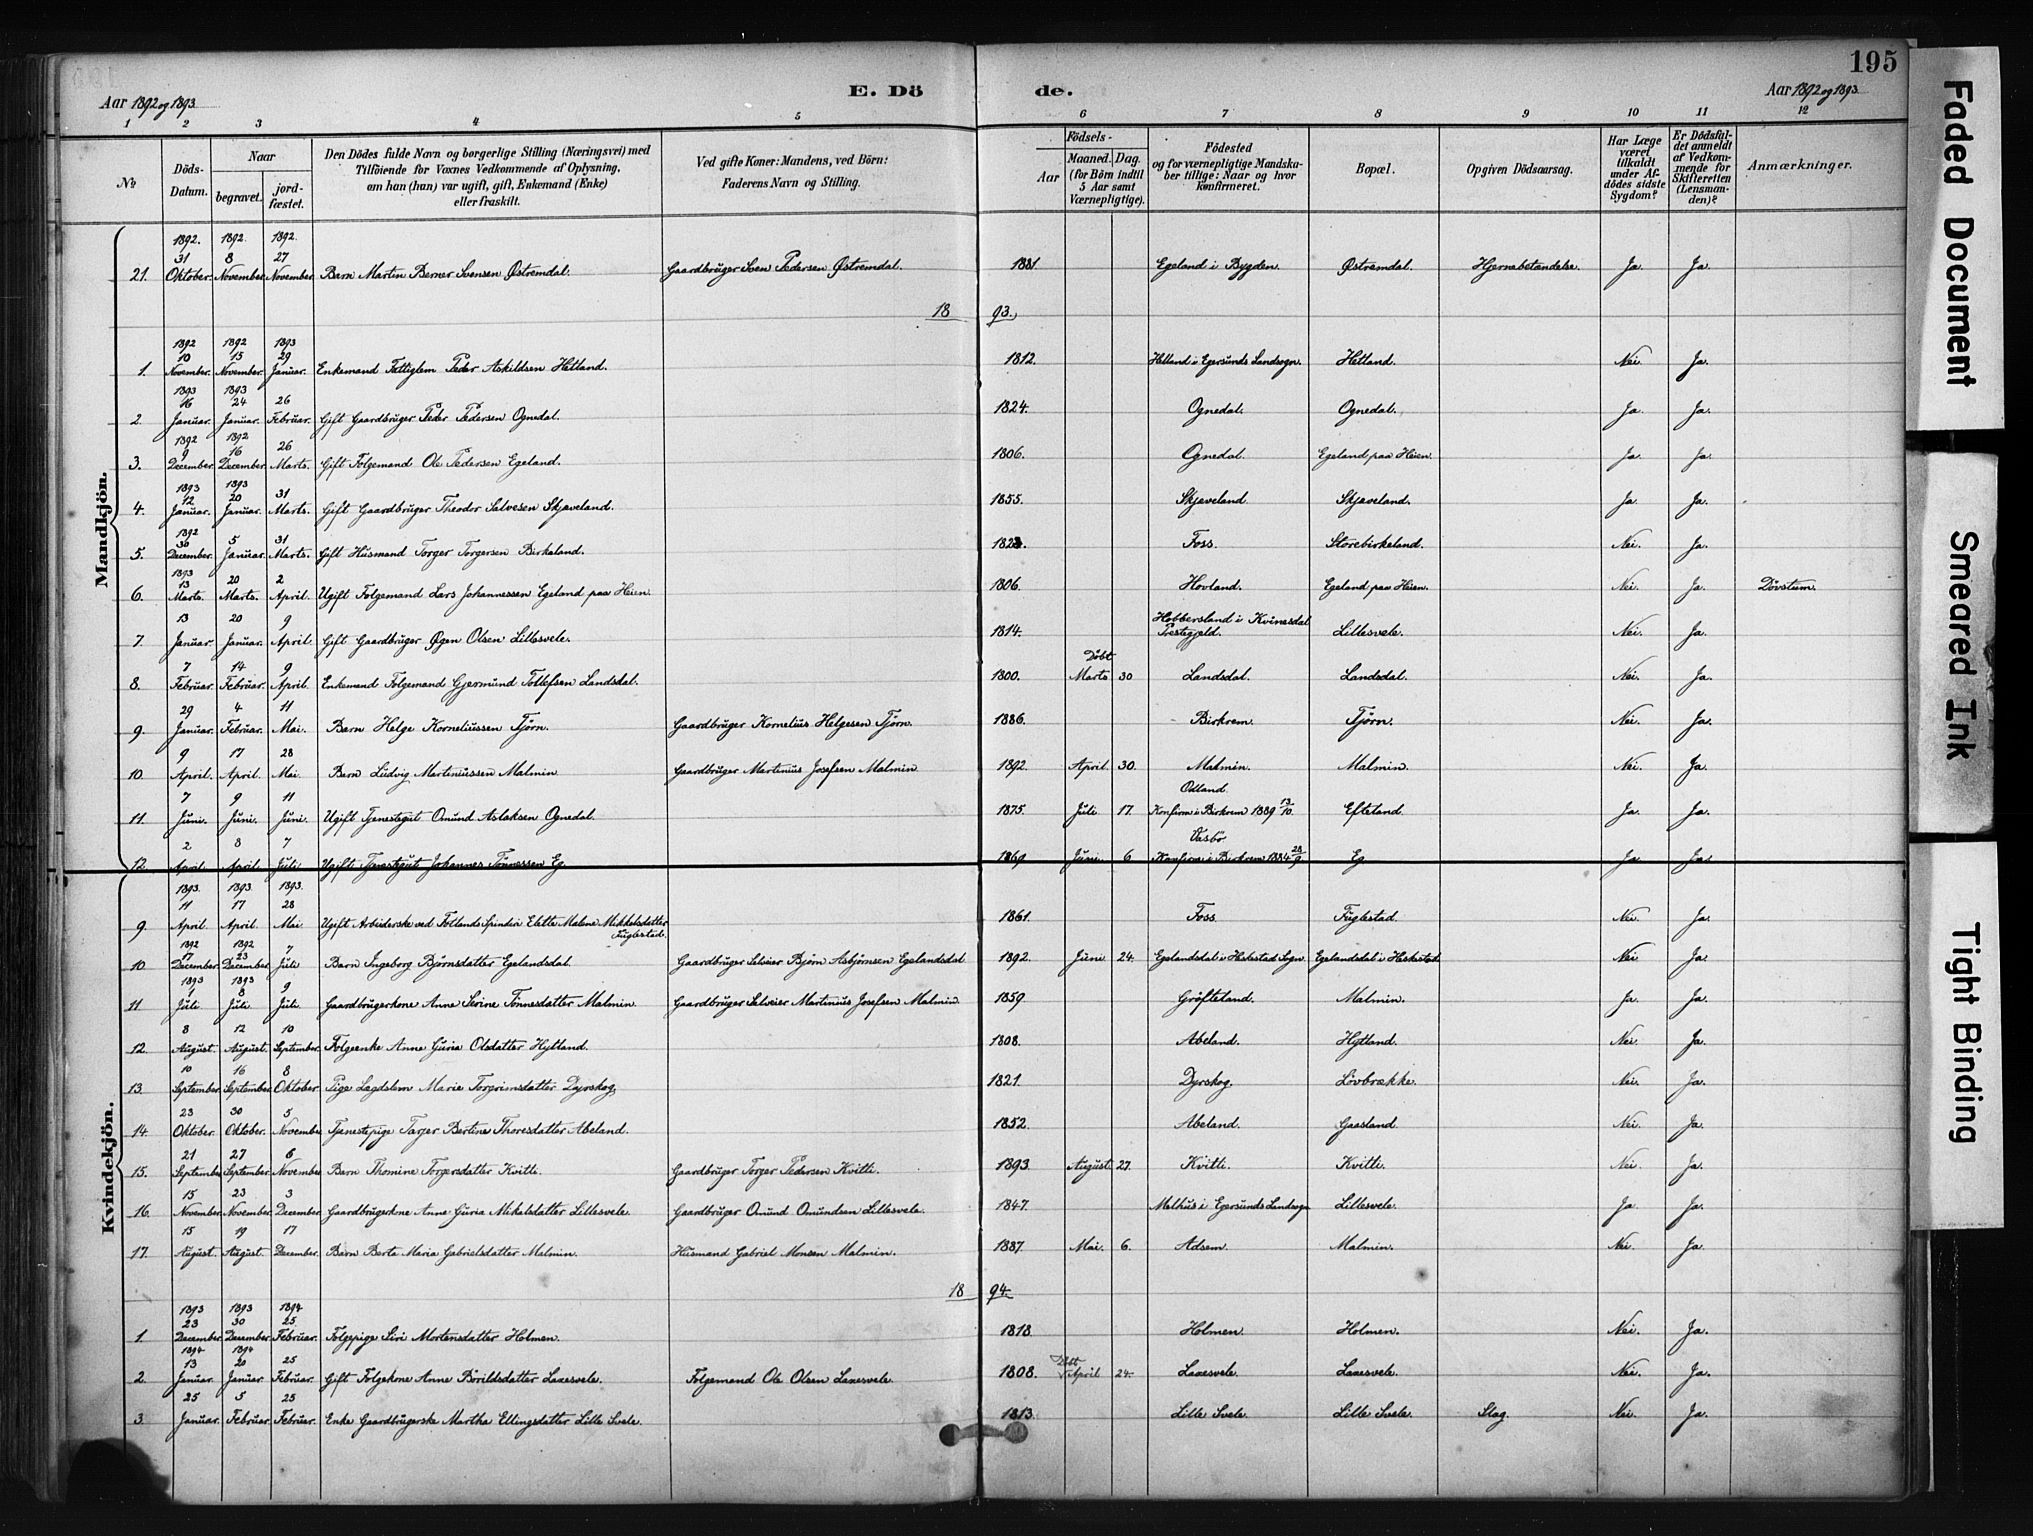 195
Aar 1892 og 1893.
E. Dö
de.
Aar 1892 og 1893.
1 2 3 4 5 6 7 8 9 10 11 12
№
Döds-Datum.
Naar
begravet.
jord-fæstet.
Den Dödes fulde Navn og borgerlige Stilling (Næringsvei) med
Tilföiende for Voxnes Vedkommende af Oplysning,
om han (hun) var ugift, gift, Enkemand (Enke)
eller fraskilt.
Ved gifte Koner: Mandens, ved Börn:
Faderens Navn og Stilling.
Födsels-
Aar
Maaned. Dag.
(for Börn indtil
5 Aar samt
Værnepligtige).
Födested
og for værnepligtige Mandska-
ber tillige: Naar og hvor
konfirmeret.
Bopæl.
Opgiven Dödsaarsag.
Har Læge
været
tilkaldt
under Af-
dödes sidste
Sygdom?
Er Dödsfal-
det anmeldt
af Vedkom-
mende for
Skifteretten
(Lensman-
den)?
Anmærkninger.
Mandkjön.
1892. 1892. 1892.
31 8 27
21. Oktober. November. November. Barn Martin Berner Svensen Østremdal. Gaardbruger Sven Pedersen Østremdal. 1881. Egeland i Bygden. Østremdal. Hjernebetændelse. Ja. Ja.
18 93.
1892 1892 1893
10 15 29
1. November. November. Januar. Enkemand Fattiglem Peder Askildsen Hetland. 1812. Hetland i Egersunds Landsogn. Hetland. Nei. Ja.
1893 1893
16 24 26
2. Januar. Januar. Februar. Gift Gaardbruger Peder Pedersen Ognedal. 1824. Ognedal. Ognedal. Ja. Ja.
1892 1892
9 16 26
3. December. December. Marts. Gift Folgemand Ole Pedersen Egeland. 1806. Ognedal. Egeland paa Heien. Ja. Ja.
1893 1893
12 20 31
4. Januar. Januar. Marts. Gift Gaardbruger Theodor Salvesen Skjæveland. 1855. Skjæveland. Skjæveland. Ja. Ja.
1892
30 5 31
5. December. Januar. Marts. Gift Husmand Torger Torgersen Birkeland. Foss. Storebirkeland. Nei. Ja.
1893
13 20 2
6. Marts. Marts. April. Ugift Folgemand Lars Johannessen Egeland paa Heien. 1806. Hovland. Egeland paa Heien. Nei. Ja. Døvstum.
13 20 9
7. Januar. Januar. April. Gift Gaardbruger Øgen Olsen Lillesvele. 1814. Hobbersland i Kvinesdal Prestegjeld. Lillesvele. Nei. Ja.
7 14 9
8. Februar. Februar. April. Enkemand Folgemand Gjermund Tollefsen Landsdal. 1800. Døbt Marts 30 Landsdal. Landsdal. Nei. Ja.
29 4 11
9. Januar. Februar. Mai. Barn Helge Korneliussen Tjørn. Gaardbruger Kornelius Helgesen Tjørn. 1886. Birkrem. Tjørn. Nei. Ja.
9 17 28
10. April. April. Mai. Barn Ludvig Martinussen Malmin. Gaardbruger Martinus Josefsen Malmin. 1892. April. 30. Malmin. Malmin. Nei. Ja.
7 9 11
11. Juni. Juni. Juni. Ugift Tjenestegut Omund Aslaksen Ognedal. 1875. Juli 17. Odland Konfirm. i Birkrem 1889 13/10. Efteland. Ja. Ja.
2 8 7
12. April. April. Juli. Ugift Tjenestegut Johannes Tønnessen Eg. 1869 Juni 6 Vasbø Konfirm. i Birkrem 1884 28/9. Eg Ja Ja.
Kvindekjön.
1893. 1893. 1893.
11 17 28
9. April. April. Mai. Ugift Arbeiderske ved Fotlands Spinderi Elette Malene Mikkelsdatter
Fuglestad. 1861. Foss. Fuglestad. Nei. Ja.
1892 1892
17 23 7
10. December. December. Juli. Barn Ingeborg Bjørnsdatter Egelandsdal. Gaardbruger Selveier Bjørn Asbjørnsen Egelandsdal 1892. Juni 24. Egelandsdal i Heskestad Sogn. Egelandsdal i Heskestad Nei. Ja.
1893 1893
1 8 9
11 Juli. Juli. Juli. Gaardbrugerkone Anne Serine Tønnesdatter Malmin. Gaardbruger Selveier Martinius Josefsen Malmin. 1859. Grøfteland. Malmin. Ja. Ja.
8 12 10
12. August. August. September. Folgeenke Anne Guria Olsdatter Hytland. 1808. Abeland. Hytland. Nei. Ja.
10 16 8
13. September. September. Oktober. Pige Lægdslem Marie Torgrimsdatter Dyrskog. 1821. Dyrskog. Løvbrække. Nei. Ja.
23 30 5
14. Oktober. Oktober. November. Tjenestepige Targer Bertine Thoresdatter Abeland. 1852. Abeland. Gaasland. Nei. Ja.
21 27 6
15. September. September. November. Barn Thomine Torgersdatter Kvitti. Gaardbruger Torger Pedersen Kvitti. 1893. August 27. Kvitti. Kvitti. Nei. Ja.
15 23 3
16. November. November. December. Gaardbrugerkone Anne Guria Mikelsdatter Lillesvele. Gaardbruger Omund Omundsen Lillesvele. 1847. Melhus i Egersunds Landsogn. Lillesvele. Ja. Ja.
15 19 17
17. August. August. December. Barn Berta Maria Gabrielsdatter Malmin. Husmand Gabriel Monsen Malmin. 1887. Mai. 6. Adsem. Malmin. Nei. Ja.
18 94.
1893 1893 1894
23 30 25
1. December. December. Februar. Folgepige Siri Mortensdatter Holmen. 1818. Holmen. Holmen. Nei. Ja.
1894 1894
13 20 25
2. Januar. Januar. Februar. Gift Folgekone Anne Børildsdatter Laxesvele. Folgemand Ole Olsen Laxesvele. 1808. Døbt April 24. Laxesvele. Laxesvele. Nei. Ja.
25 5 25
3. Januar. Februar. Februar. Enke Gaardbrugerske Martha Ellingsdatter Lille Svele. 1813. Lille Svele. Lille Svele. Slag. Nei. Ja.
Faded Document
Smeared Ink
Tight Binding